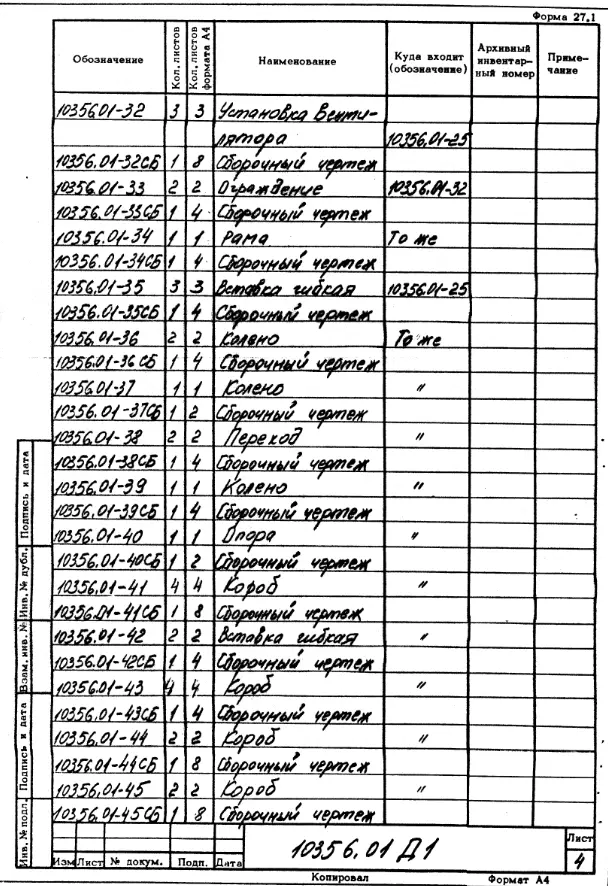 Форма 27.1
Обозначение Кол. листов Кол. листов формата А4 Наименование Куда входит (обозначение) Архивный инвентарный номер Примечание
10356.01-32 3 3 Установка Венти-
лятора 10356.01-25
10356.01-32СБ 1 8 Сборочный чертеж
10356.01-33 2 2 Ограждение 10356.01-32
10356.01-33СБ 1 4 Сборочный чертеж
10356.01-34 1 1 Рама То же
10356.01-34СБ 1 4 Сборочный чертеж
10356.01-35 3 3 Вставка гибкая 10356.01-25
10356.01-35СБ 1 4 Сборочный чертеж
10356.01-36 2 2 Колено То же
10356.01-36СБ 1 4 Сборочный чертеж
10356.01-37 1 1 Колено "
10356.01-37СБ 1 2 Сборочный чертеж
10356.01-38 2 2 Переход "
10356.01-38СБ 1 4 Сборочный чертеж
10356.01-39 1 1 Колено "
10356.01-39СБ 1 4 Сборочный чертеж
10356.01-40 1 1 Опора "
10356.01-40СБ 1 2 Сборочный чертеж
10356.01-41 4 4 Короб "
10356.01-41СБ 1 8 Сборочный чертеж
10356.01-42 2 2 Вставка гибкая "
10356.01-42СБ 1 4 Сборочный чертеж
10356.01-43 4 4 Короб "
10356.01-43СБ 1 4 Сборочный чертеж
10356.01-44 2 2 Короб "
10356.01-44СБ 1 8 Сборочный чертеж
10356.01-45 2 2 Короб "
10356.01-45СБ 1 8 Сборочный чертеж
Инв. № подл. Подпись и дата Взам. инв. № Инв. № дубл. Подпись и дата
10356.01 Д1
Лист
4
Изм Лист № докум. Подп. Дата
Копировал Формат А4